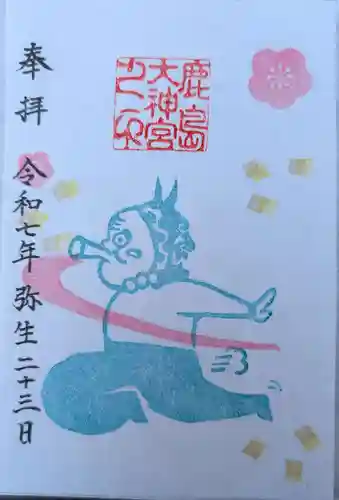 奉拝
令和七年弥生二十三日
鹿島
大神宮
之印